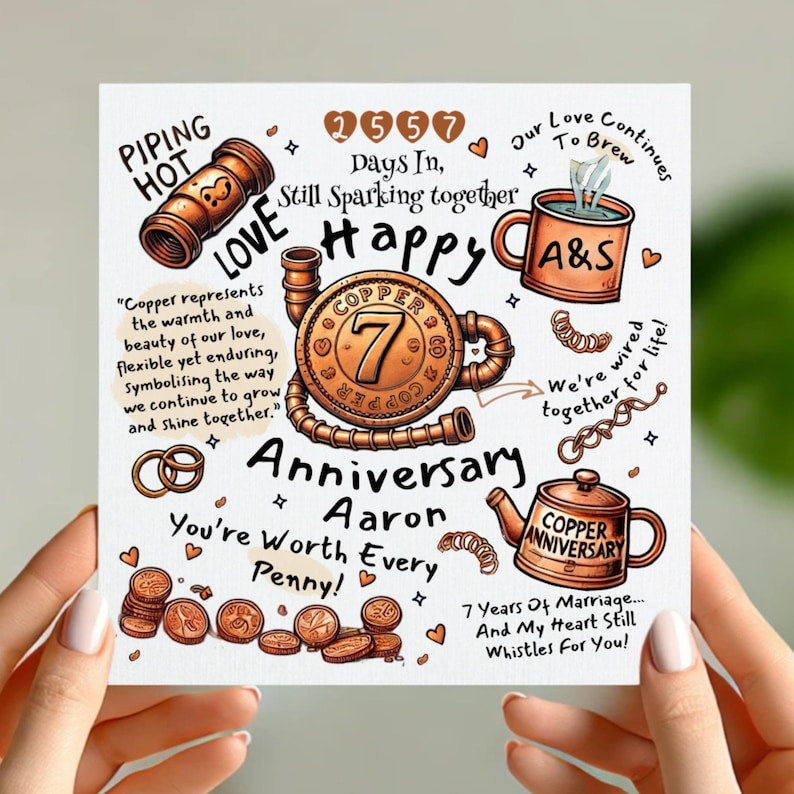 2557
Days In,
Still Sparking together
PIPING
HOT
LOVE
Our Love Continues
To Brew
A&S
Happy
COPPER
7
COPPER
"Copper represents
the warmth and
beauty of our love,
flexible yet enduring,
symbolising the way
we continue to grow
and shine together."
We're wired
together for life!
Anniversary
Aaron
You're Worth Every
Penny!
COPPER
ANNIVERSARY
7 Years Of Marriage...
And My Heart Still
Whistles For You!